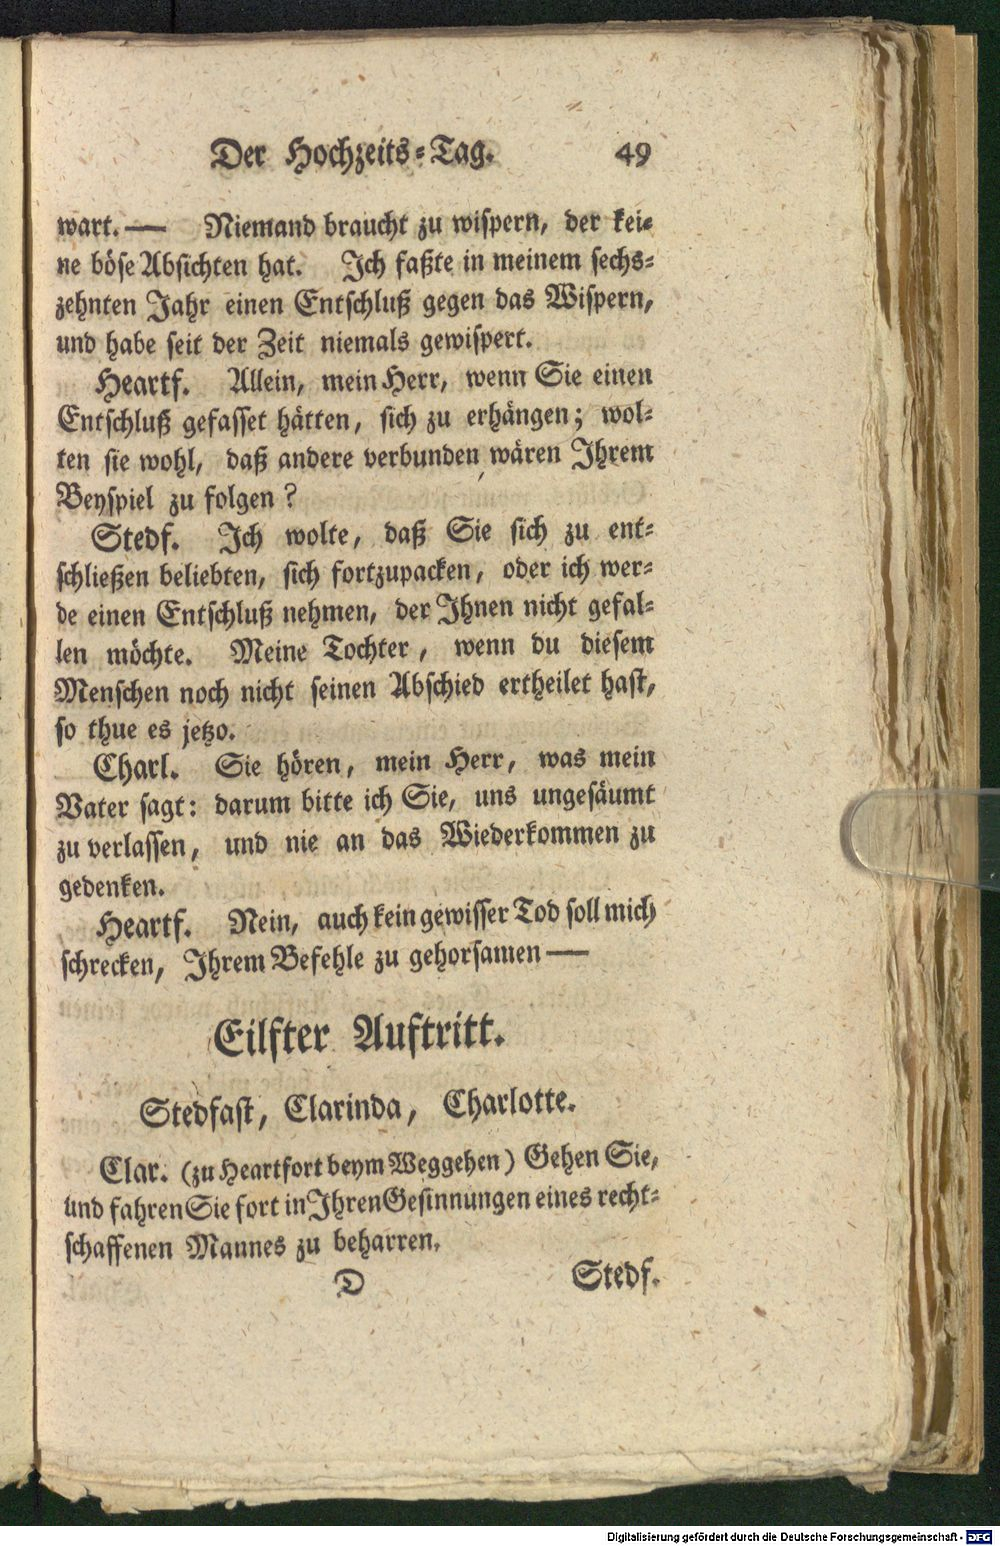 Der Hochzeits-Tag. 49
wart.— Niemand braucht zu wispern, der kei-
ne böse Absichten hat. Ich faßte in meinem sechs-
zehnten Jahr einen Entschluß gegen das Wispern,
und habe seit der Zeit niemals gewispert.
Heartf. Allein, mein Herr, wenn Sie einen
Entschluß gefasset hätten, sich zu erhängen; wol-
ten sie wohl, daß andere verbunden wären Ihrem
Beyspiel zu folgen?
Stedf. Ich wolte, daß Sie sich zu ent-
schließen beliebten, sich fortzupacken, oder ich wer-
de einen Entschluß nehmen, der Ihnen nicht gefal-
len möchte. Meine Tochter, wenn du diesem
Menschen noch nicht seinen Abschied ertheilet hast,
so thue es jetzo.
Charl. Sie hören, mein Herr, was mein
Vater sagt: darum bitte ich Sie, uns ungesäumt
zu verlassen, und nie an das Wiederkommen zu
gedenken.
Heartf. Nein, auch kein gewisser Tod soll mich
schrecken, Ihrem Befehle zu gehorsamen—
Eilfter Auftritt.
Stedfast, Clarinda, Charlotte.
Clar. (zu Heartfort beym Weggehen) Gehen Sie,
und fahren Sie fort in Ihren Gesinnungen eines recht-
schaffenen Mannes zu beharren.
D Stedf.
Digitalisierung gefördert durch die Deutsche Forschungsgemeinschaft - DFG